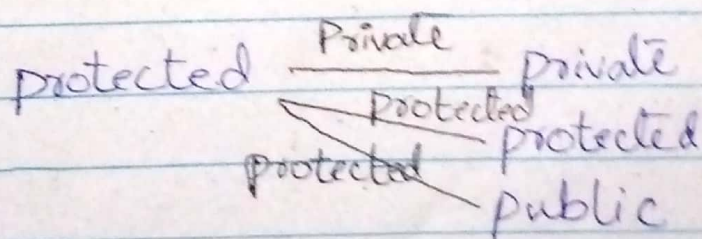 Private
protected private
protected
protected
protected
public